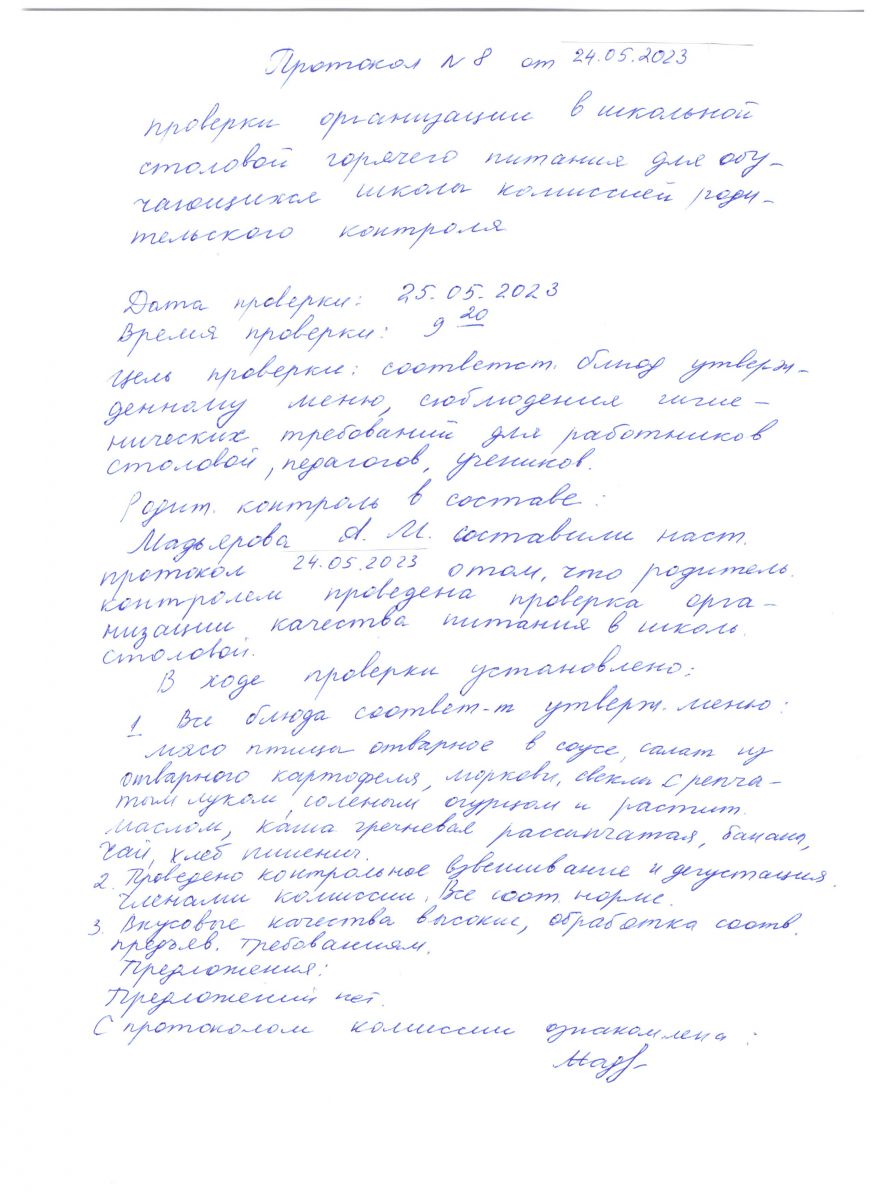 Протокол N 8 от 24.05.2023
проверки организации в школьной
столовой горячего питания для обу-
чающихся школы комиссией роди-
тельского контроля
Дата проверки: 25.05.2023
Время проверки: 9 20
Цель проверки: соответст. блюд утверж-
денному меню, соблюдения гигие-
нических требований для работников
столовой, педагогов, учеников.
Родит. контроль в составе:
Мадьярова А. И. составили наст.
протокол 24.05.2023 о том, что родитель.
контролем проведена проверка орга-
низации качества питания в школь.
столовой.
В ходе проверки установлено:
1 Все блюда соответ-т утверж. меню:
мясо птицы отварное в соусе, салат из
отварного картофеля, моркови, свеклы с репча-
тым луком, соленым огурцом и растит.
маслом, каша гречневая рассыпчатая, банан,
чай, хлеб пшенич.
2. Проведено контрольное взвешивание и дегустация
членами комиссии. Все соот. норме.
3. Вкусовые качества высокие, обработка соотв.
предъяв. требованиям.
Предложения:
Предложений нет.
С протоколом комиссии ознакомлена: